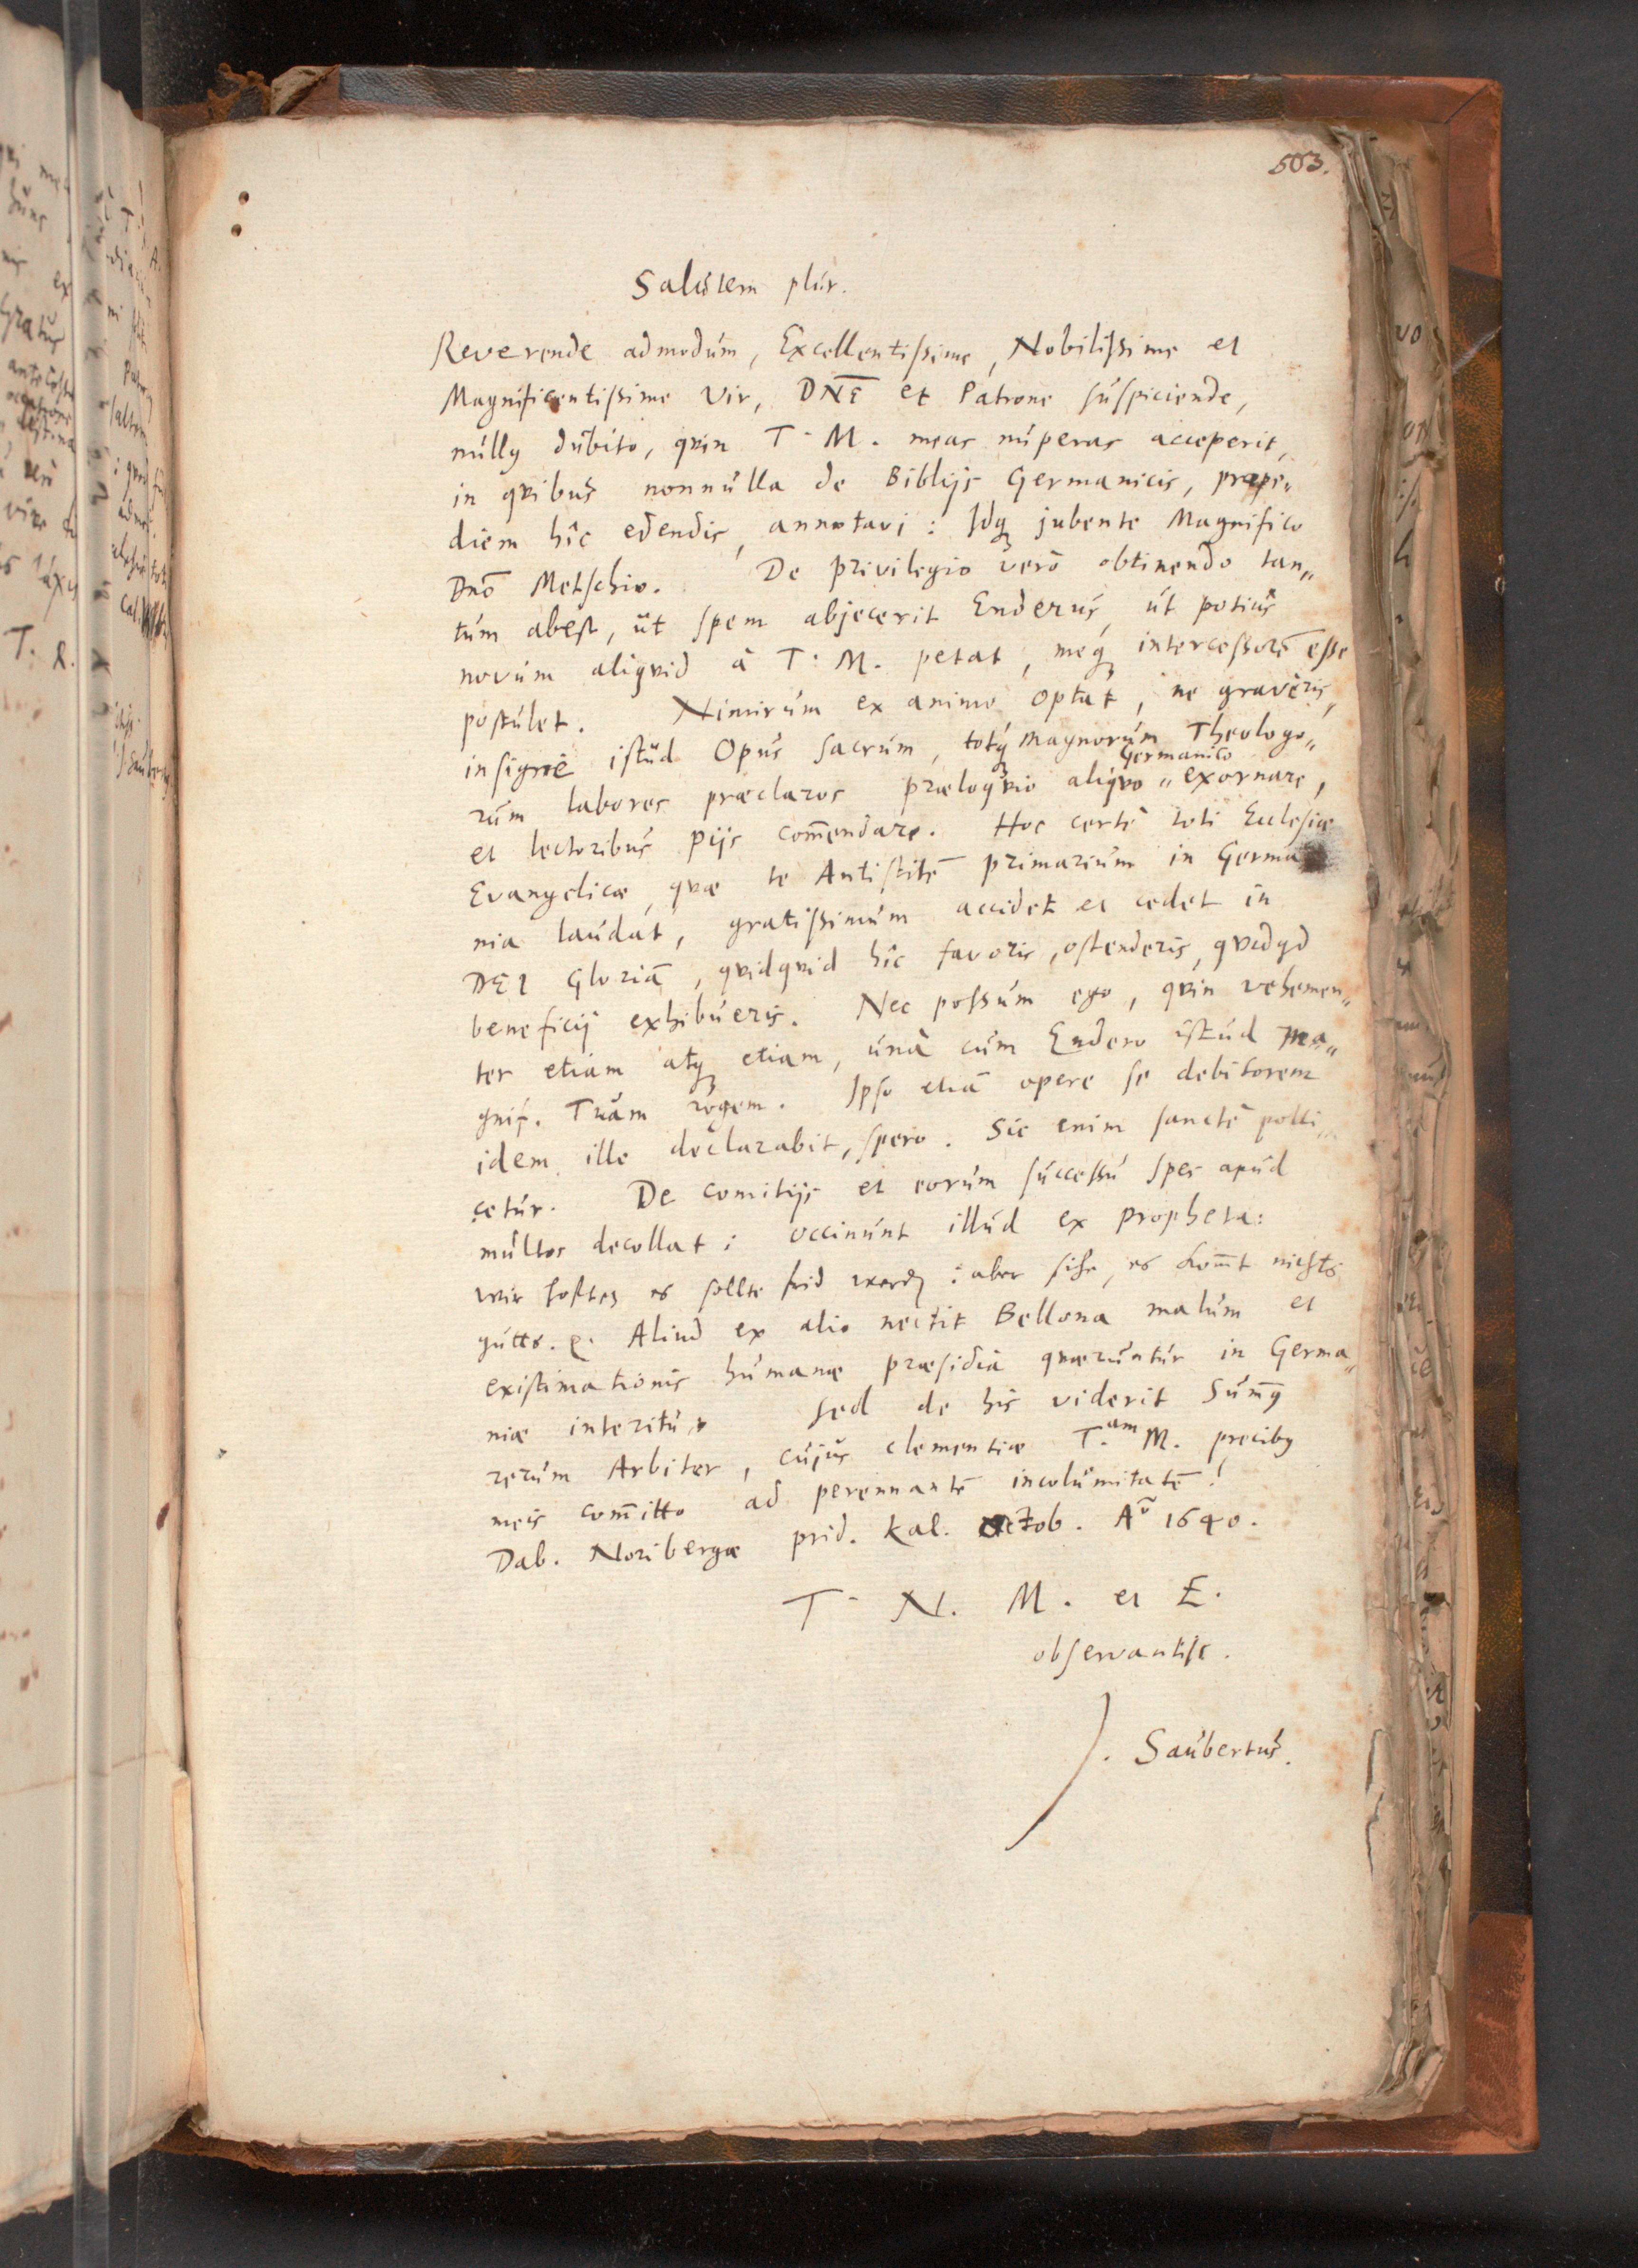 503.
Salutem plur.
Reverende admodum, Excellentissime, Nobilissime et
Magnificentissime Vir, DNE et Patrone suspiciende,
nullq dubito, qvin T. M. meas nuperas acceperit,
in qvibus nonnulla de Biblijs Germanicis, prope„
diem hîc edendis, annotavi: Idq jubente Magnifico
Dnō Metschio. De privilegio verò obtinendo tan„
tum abest, ut spem abjecerit Enderus, ut potius
novum aliqvid à T. M. petat, meq intercessorē esse
postulet. Nimirum ex animo optat, ne graveris,
insigne istud Opus sacrum, totq magnorum Theologo„
rum labores præclaros præloqvio aliqvo „ Germanico exornare,
et lectoribus pijs com̄endare. Hoc certè toti Ecclesiæ
Evangelicæ, qvæ te Antistitē primarium in Germa
nia laudat, gratissimum accidet et cedet in
DEI Gloriā, qvidqvid hîc favoris, ostenderis, qvidqd
beneficij exhibueris. Nec possum ego, qvin vehemen„
ter etiam atq etiam, unà cum Endero istud Ma„
gnif. Tuam rogem. Ipso etiā opere se debitorem
idem ille declarabit, spero. Sic enim sanctè polli„
cetur. De comitijs et eorum successu spes apud
multos decollat: occinunt illud ex propheta:
Wir hofften es sollte frid werdē: aber sihe, es kom̄t nichts
gutts. Aliud ex alio nectit Bellona malum et
existimationis humanæ præsidia qværuntur in Germa„
niæ interitu. Sed de his viderit Sum̄q
rerum Arbiter, cujus clementiæ T.am M. precibq
meis com̄itto ad perennantē incolumitatē!
Dab. Noribergæ prid. Kal. Octob. Aō 1640.
T. N. M. et E.
observantiss.
J. Saubertus.